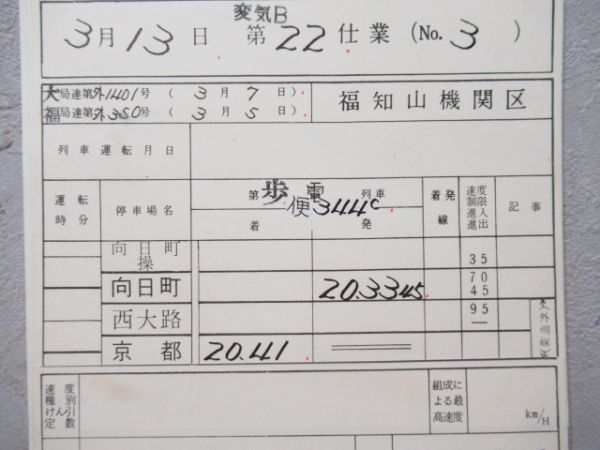 変気B
3月13日 第22仕業 (No. 3 )
大局達第外1401号 ( 3月 7日)
福局達第外350号 ( 3月 5日)
福知山機関区
列車運転月日
運転時分 停車場名 第 歩 電 列車 便344C 着 発 着発線 速度制限 進入 進出 記事
向日町操 35
向日町 20.3345 70 45
西大路 95 —
京都 20.41
速度種別 けん引定数
組成による最高速度 km/H